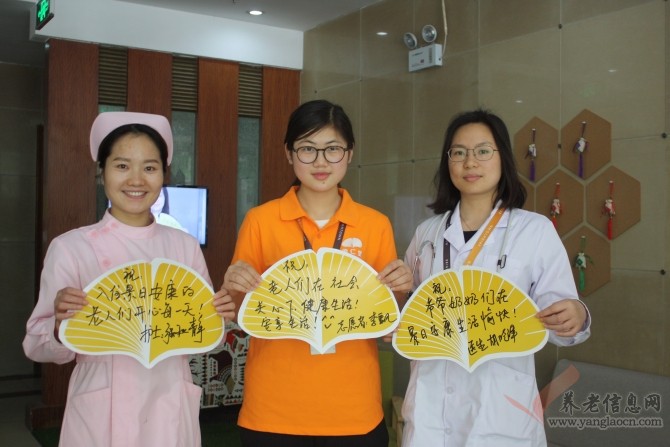 祝
入住景日安康的
老人们开心每一天!
护士
祝:
老人们在社会
关心下,健康生活!
安享生活!
志愿者:
祝:
爷爷奶奶们在
景日安康生活愉快!
医生:胡
养老信息网
www.yanglaocn.com